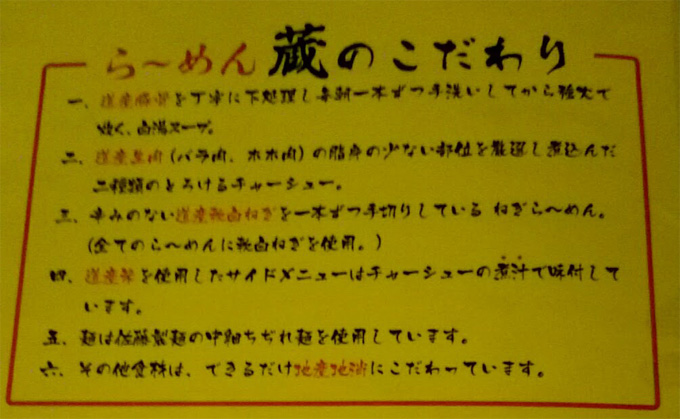 ら～めん 蔵のこだわり
一、道産豚骨を丁寧に下処理し毎朝一本ずつ手洗いしてから強火で
炊く、白湯スープ。
二、道産豚肉(バラ肉、ホホ肉)の脂身の少ない部位を厳選し煮込んだ
二種類のとろけるチャーシュー。
三、辛みのない道産軟白ねぎを一本ずつ手切りしている ねぎら～めん。
(全てのら～めんに軟白ねぎを使用。)
四、道産米を使用したサイドメニューはチャーシューの煮汁で味付して
います。
五、麺は佐藤製麺の中細ちぢれ麺を使用しています。
六、その他食材は、できるだけ地産地消にこだわっています。